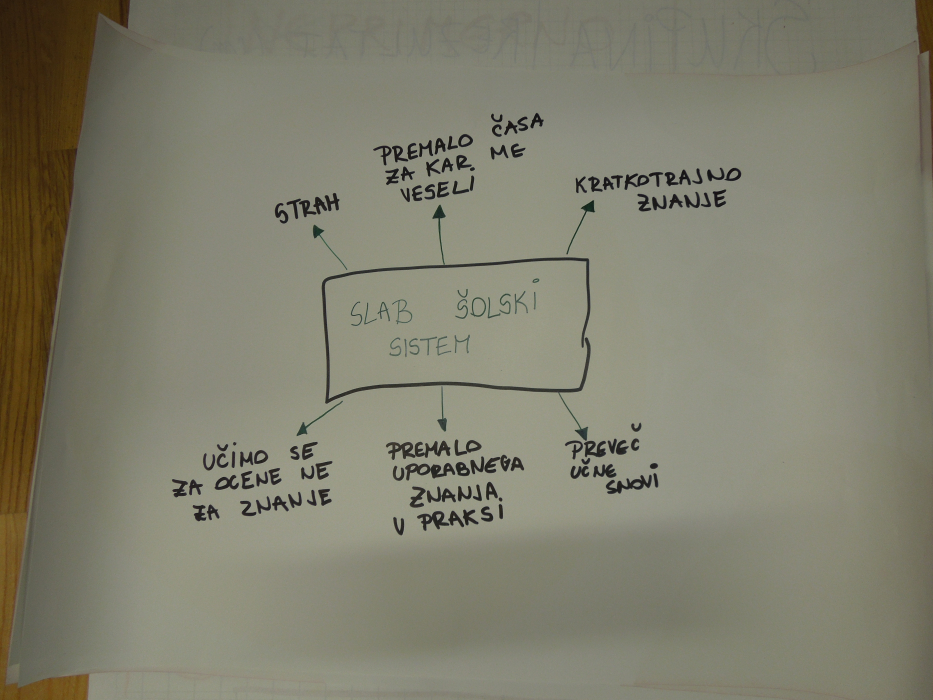 PREMALO ČASA
ZA KAR ME
VESELI
STRAH
KRATKOTRAJNO
ZNANJE
SLAB ŠOLSKI
SISTEM
UČIMO SE
ZA OCENE NE
ZA ZNANJE
PREMALO
UPORABNEGA
ZNANJA
V PRAKSI
PREVEČ
UČNE
SNOVI